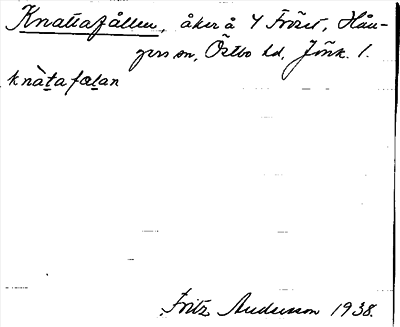 Knattafållen, åker å Y Fröset, Hån-
gers sn, Östbo hd, Jönk. l.
knàtafælan
Fritz Andersson 1938.